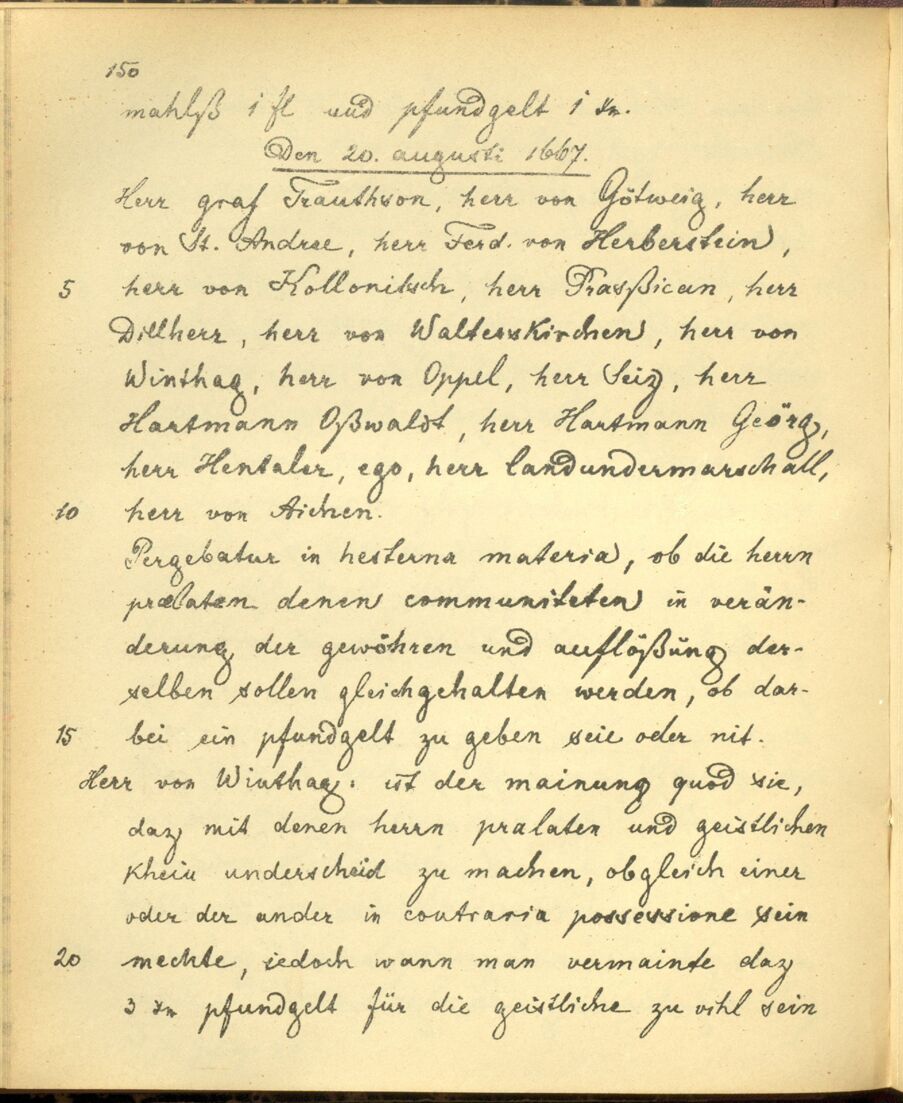 150
mahlß 1 fl und pfundgelt 1 xn.
Den 20. augusti 1667.
Herr graf Trauthson, herr von Götweig, herr
von St. Andrae, herr Ferd. von Herberstein,
5 herr von Kollonitsch, herr Prasßican, herr
Dillherr, herr von Walterskirchen, herr von
Winthag, herr von Oppel, herr Seiz, herr
Hartmann Oßwaldt, herr Hartmann Geörg,
herr Hentaler, ego, herr landundermarschall,
10 herr von Aichen.
Pergebatur in hesterna materia, ob die herrn
prælaten denen communiteten in verän-
derung der gewöhren und auflößung der-
selben sollen gleichgehalten werden, ob dar-
15 bei ein pfundgelt zu geben seie oder nit.
Herr von Winthag: ist der mainung quod sie,
daz mit denen herrn pralaten und geistlichen
khein underscheid zu machen, obgleich einer
oder der ander in contraria possessione sein
20 mechte, jedoch wann man vermainte daz
3 xn pfundgelt für die geistliche zu vihl sein